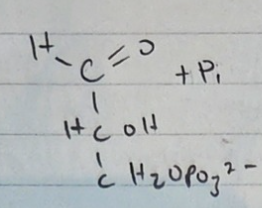 H C = O + Pi
H C OH
C H2OPO3 2-